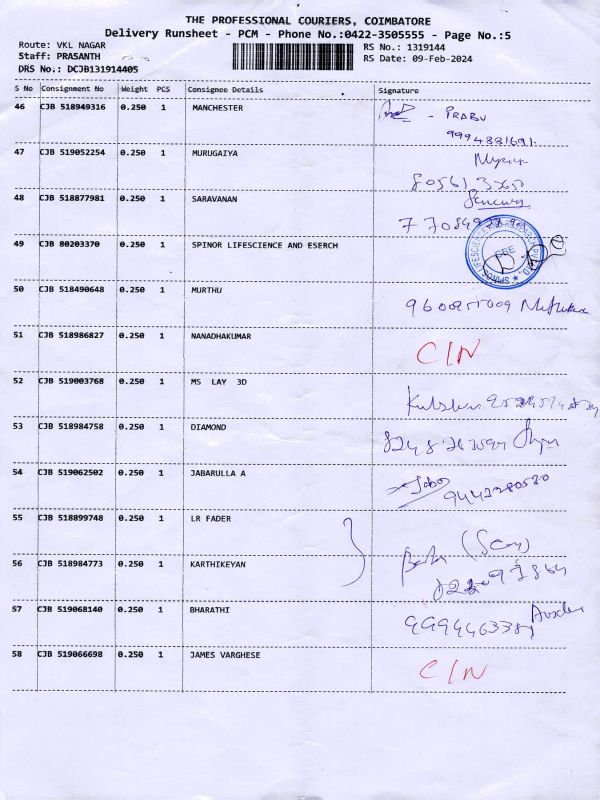 THE PROFESSIONAL COURIERS, COIMBATORE
Delivery Runsheet - PCM - Phone No.:0422-3505555 - Page No.:5
Route: VKL NAGAR
RS No.: 1319144
Staff: PRASANTH
RS Date: 09-Feb-2024
DRS No.: DCJB131914405
S No Consignment No Weight PCS Consignee Details Signature
46 CJB 518949316 0.250 1 MANCHESTER - PRABU
9994881691.
47 CJB 519052254 0.250 1 MURUGAIYA
48 CJB 518877981 0.250 1 SARAVANAN
49 CJB 80203370 0.250 1 SPINOR LIFESCIENCE AND ESERCH
CBE
50 CJB 518490648 0.250 1 MURTHU
51 CJB 518986827 0.250 1 NANADHAKUMAR C/N
52 CJB 519003768 0.250 1 MS LAY 3D
53 CJB 518984758 0.250 1 DIAMOND
54 CJB 519062502 0.250 1 JABARULLA A
9442380520
55 CJB 518899748 0.250 1 LR FADER
56 CJB 518984773 0.250 1 KARTHIKEYAN
57 CJB 519068140 0.250 1 BHARATHI
58 CJB 519066698 0.250 1 JAMES VARGHESE C/N